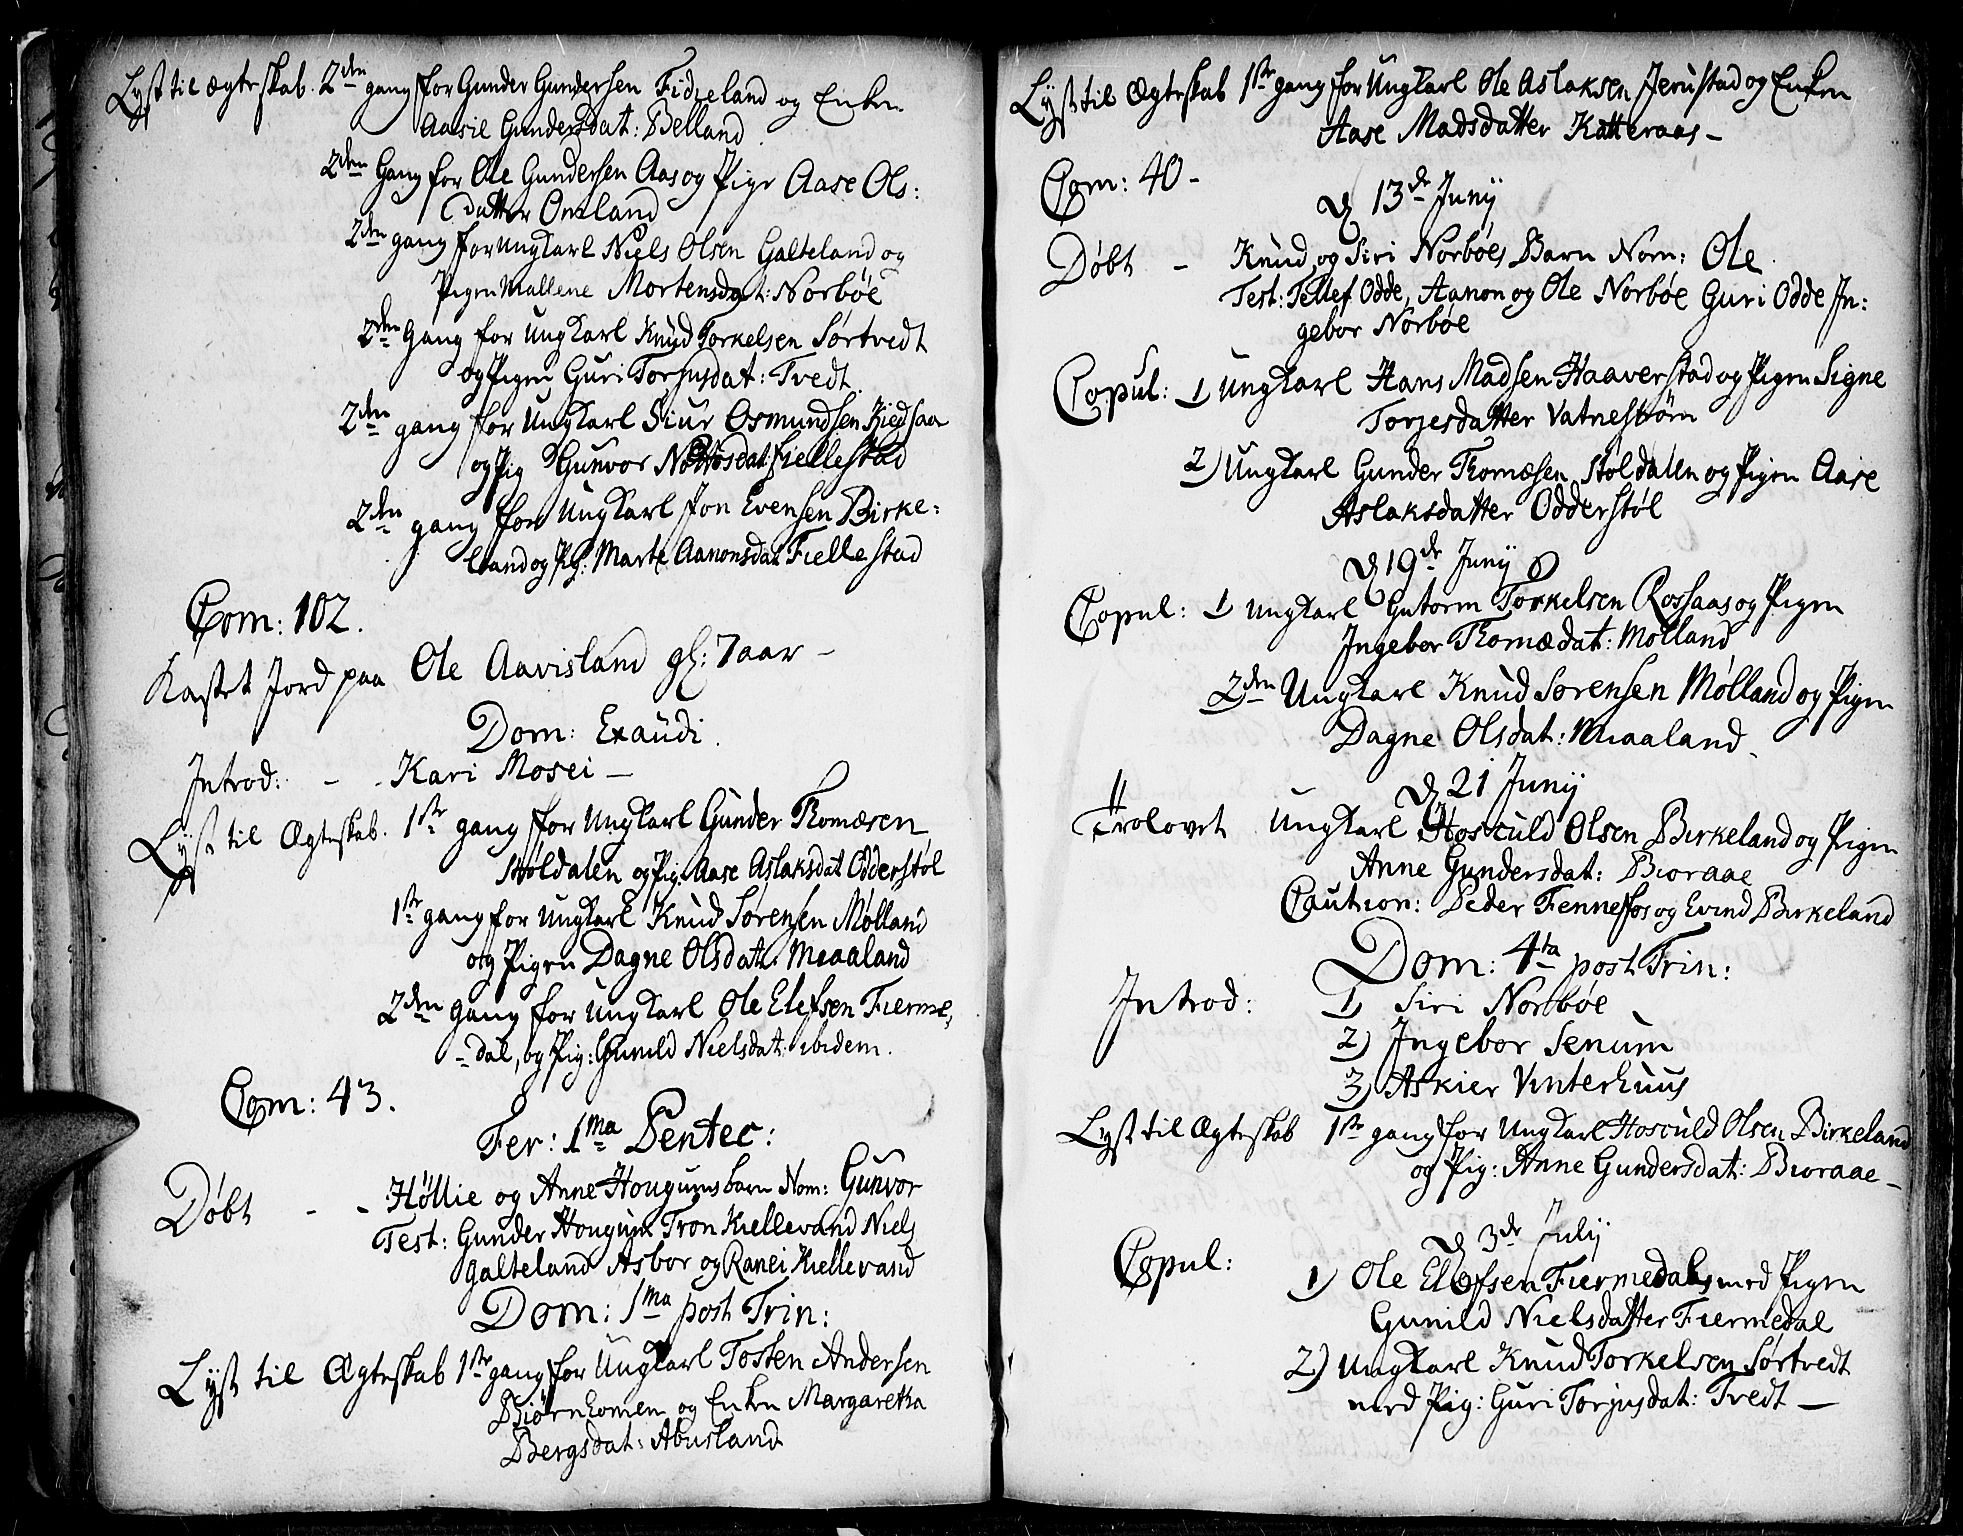 Lyst til Ægteskab. 2den gang for Gunder Gundersen Fidieland og Enken
Aasie Gundersdat: Belland
2den Gang for Ole Gundersen Aas og Pige Aase Ols:
datter Omland
2den gang for Ungkarl Niels Olsen Galteland og
Pigen Mallene Mortensdat: Norbøe
2den Gang for Ungkarl Knud Torkelsen Sørtvedt
og Pigen Guri Torjusdat: Tvedt.
2den gang for Ungkarl Siur Osmundsen Kiedsaa
og Pig Gunvor Fiellestad
2den gang for Ungkarl Jon Evensen Birke:
land og Pig: Marte Aanonsdat Fiellestad
Com: 102.
Kastet Jord paa Ole Aavisland gl: 7 aar -
Dom: Exaudi.
Introd: - - Kari Mosei -
Lyst til Ægteskab. 1ste gang for Ungkarl Gunder Thomæsen
Støldalen og Pig: Aase Aslaksdat Odderstøl
1ste gang for Ungkarl Knud Sørensen Mølland
og Pigen Dagne Olsdat: Miaaland
2den gang for Ungkarl Ole Elefsen Fierme,
- dal, og Pig: Gunild Nielsdat: ibidem.
Com: 43.
Fer: 1ma Pentec:
Døbt - - Høllie og Anne Hougums barn Nom: Gunvor
Test: Gunder Hougum Tron Kiellevand Niels
Galteland Asbor og Ranei Kiellevand
Dom: 1ma post Trin:
Lyst til Ægteskab 1ste gang for Ungkarl Tosten Andersen
Biørnhomen og Enken Margaretha
Bergsdat: Abusland
Lyst til Ægteskab 1ste gang for Ungkarl Ole Aslaksen Jerustad og Enken
Aase Madsdatter Katteraas -
Com: 40 -
D 13de Junij
Døbt - Knud og Siri Norbøes Barn Nom: Ole.
Test: Tellef Odde, Aanon og Ole Norbøe Guri Odde In:
gebor Norbøe
Copul: 1 Ungkarl Hans Madsen Haaverstad og Pigen Signe
Torjesdatter Vatnestrøm
2) Ungkarl Gunder Thomæsen Støldalen og Pigen Aase
Aslaksdatter Odderstøl
D 19de Junij
Copul: 1 Ungkarl Gutorm Torkelsen Rossaas og Pigen
Ingebor Thomædat: Mølland
2den Ungkarl Knud Sørensen Mølland og Pigen
Dagne Olsdat: Miaaland
D 21 Junij
Trolovet Ungkarl Hosculd Olsen Birkeland og Pigen
Anne Gundersdat: Bioraae
Caution: Peder Fennefos og Evind Birkeland
Dom: 4ta post Trin:
Introd: 1) Siri Norbøe
2) Ingebor Senum
3) Askier Vinterhuus
Lyst til Ægteskab 1ste gang for Ungkarl Hosculd Olsen Birkeland
og Pig: Anne Gundersdat: Bioraae -
D 3de Julij
Copul: 1) Ole Elefsen Fiermedal med Pigen
Gunild Nielsdatter Fiermedal
2) Ungkarl Knud Torkelsen Sørtvedt
med Pig: Guri Torjusdat: Tvedt -